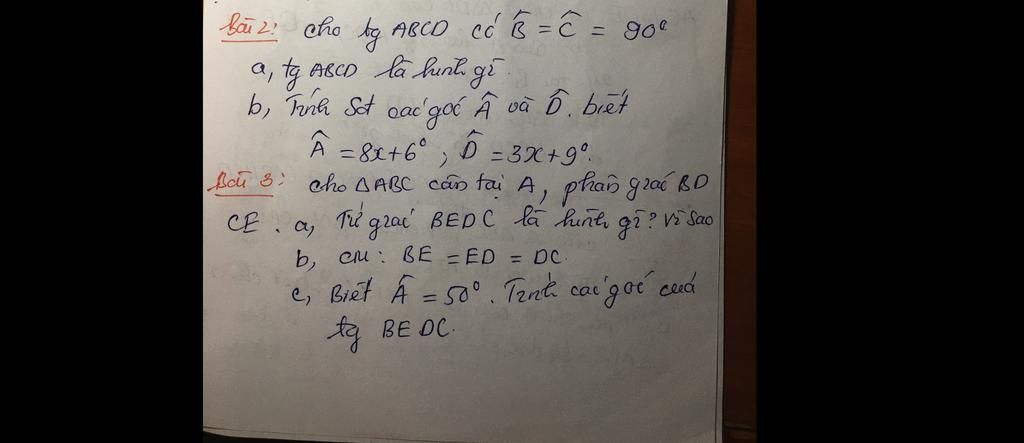 Bài 2: cho tg ABCD có B̂ = Ĉ = 90°
a, tg ABCD là hình gì.
b, Tính Sđ các góc Â và D̂. biết
Â = 8x+6°, D̂ = 3x+9°.
Bài 3: cho △ABC cân tại A, phân giác BD
CE. a, Tứ giác BEDC là hình gì? Vì sao
b, CM: BE = ED = DC.
c, Biết Â = 50°. Tính các góc của
tg BEDC.